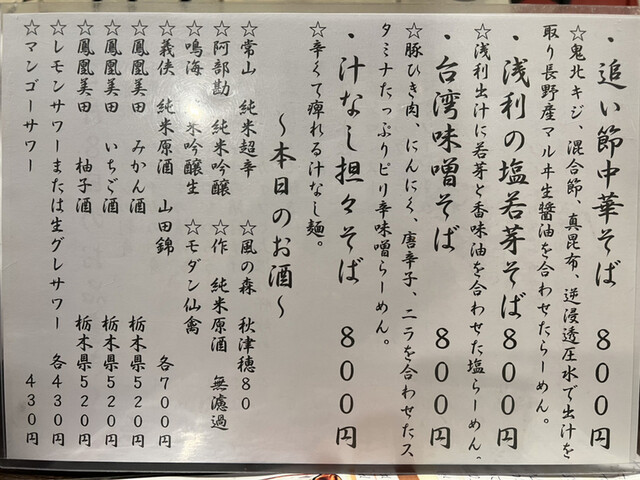 ・追い節中華そば　８００円
☆鬼北キジ、混合節、真昆布、逆浸透圧水で出汁を
取り長野産マルヰ生醤油を合わせたらーめん。
・浅利の塩若芽そば８００円
☆浅利出汁に若芽と香味油を合わせた塩らーめん。
・台湾味噌そば　８００円
☆豚ひき肉、にんにく、唐辛子、ニラを合わせたス
タミナたっぷりピリ辛味噌らーめん。
・汁なし担々そば　８００円
☆辛くて痺れる汁なし麺。
～本日のお酒～
☆常山　純米超辛　☆風の森　秋津穂８０
☆阿部勘　純米吟醸　☆作　純米原酒　無濾過
☆鳴海　米吟醸生　☆モダン仙禽
☆義侠　純米原酒　山田錦　各７００円
☆鳳凰美田　みかん酒　栃木県５２０円
☆鳳凰美田　いちご酒　栃木県５２０円
☆鳳凰美田　柚子酒　栃木県５２０円
☆レモンサワーまたは生グレサワー　各４３０円
☆マンゴーサワー　４３０円